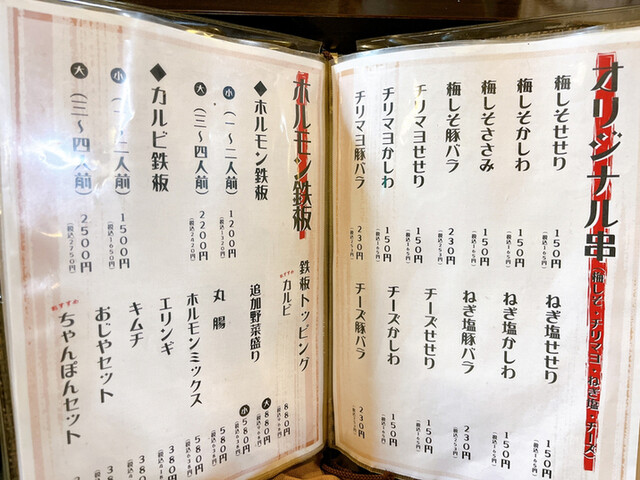 オリジナル串
(梅しそ・チリマヨ・ねぎ塩・チーズ)
梅しそせせり 150円
(税込165円)
梅しそかしわ 150円
(税込165円)
梅しそささみ 150円
(税込165円)
梅しそ豚バラ 230円
(税込253円)
チリマヨせせり 150円
(税込165円)
チリマヨかしわ 150円
(税込165円)
チリマヨ豚バラ 230円
(税込253円)
ねぎ塩せせり 150円
(税込165円)
ねぎ塩かしわ 150円
(税込165円)
ねぎ塩豚バラ 230円
(税込253円)
チーズせせり 150円
(税込165円)
チーズかしわ 150円
(税込165円)
チーズ豚バラ 230円
ホルモン鉄板
◆ホルモン鉄板
小 (一〜二人前) 1200円
(税込1320円)
大 (三〜四人前) 2200円
(税込2420円)
◆カルビ鉄板
小 (一〜二人前) 1500円
(税込1650円)
大 (三〜四人前) 2500円
(税込2750円)
鉄板トッピング
おすすめ
カルビ 880円
(税込968円)
追加野菜盛り 大 880円
(税込968円)
小 580円
(税込638円)
丸腸 580円
(税込638円)
ホルモンミックス 580円
(税込638円)
エリンギ 380円
(税込418
キムチ 380
おじやセット
おすすめ
ちゃんぽんセット